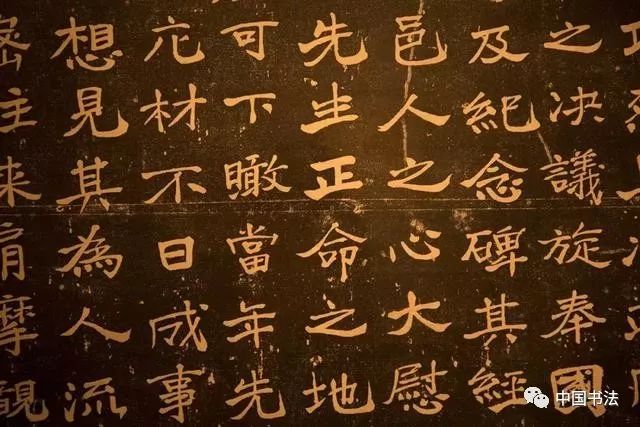 之决議旋奉國
及紀念碑其經
邑人之心大慰
先生正命之地
可下瞰當年先
庀材不日成事
想見其為人流
來肩摩觀
中国书法